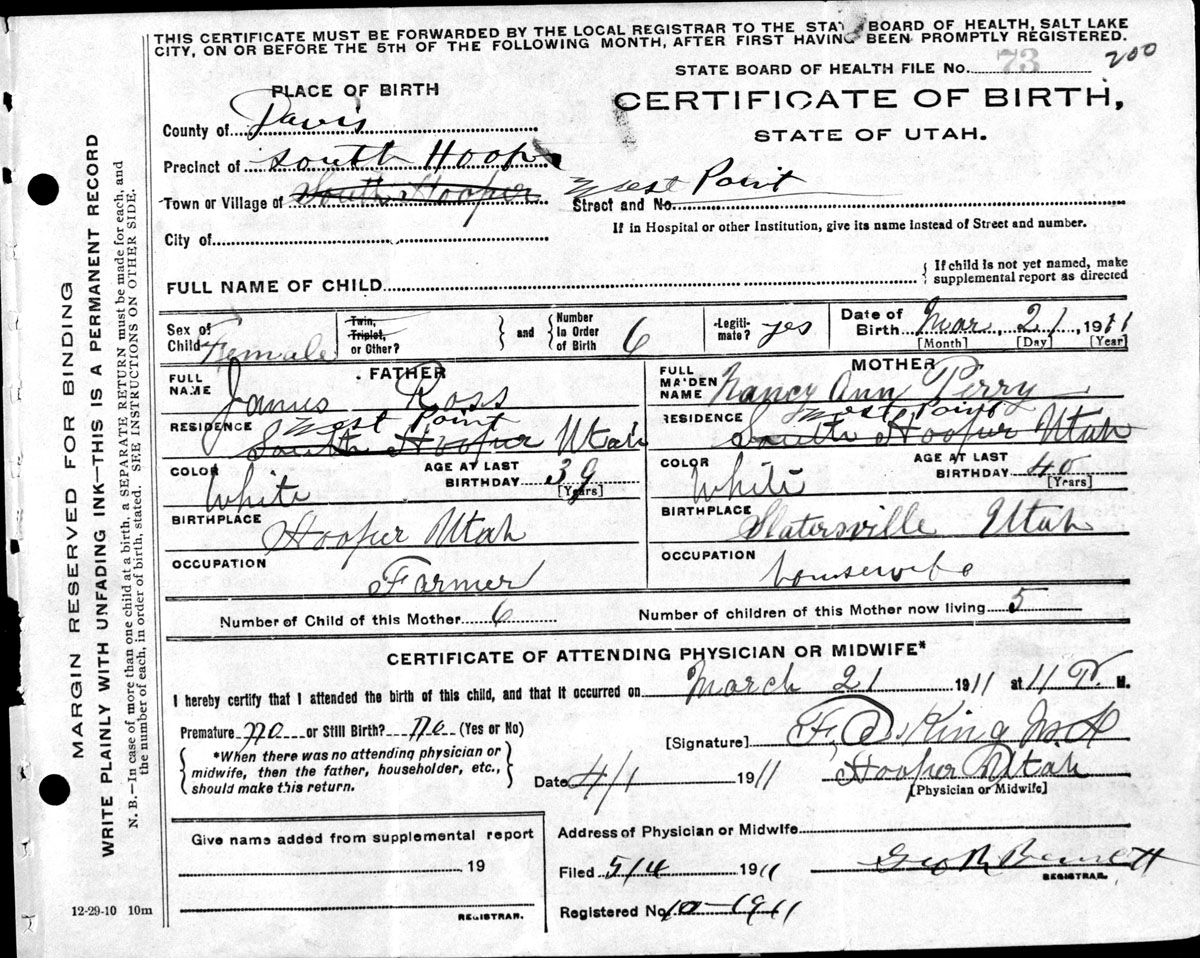 THIS CERTIFICATE MUST BE FORWARDED BY THE LOCAL REGISTRAR TO THE STATE BOARD OF HEALTH, SALT LAKE
CITY, ON OR BEFORE THE 5TH OF THE FOLLOWING MONTH, AFTER FIRST HAVING BEEN PROMPTLY REGISTERED.
200
STATE BOARD OF HEALTH FILE No. 73
PLACE OF BIRTH
CERTIFICATE OF BIRTH,
STATE OF UTAH.
County of Davis
Precinct of South Hooper
Town or Village of South Hooper West Point
Street and No.
If in Hospital or other Institution, give its name instead of Street and number.
City of
FULL NAME OF CHILD
If child is not yet named, make
supplemental report as directed
Sex of Child Female
Twin, Triplet, or Other? and Number in Order of Birth 6
Legiti-mate? yes
Date of Birth Mar 21, 1911
[Month] [Day] [Year]
FATHER
FULL NAME James Ross
RESIDENCE West Point
South Hooper Utah
COLOR White AGE AT LAST BIRTHDAY 39
[Years]
BIRTHPLACE Hooper Utah
OCCUPATION Farmer
MOTHER
FULL MAIDEN NAME Nancy Ann Perry
RESIDENCE West Point
South Hooper Utah
COLOR White AGE AT LAST BIRTHDAY 40
[Years]
BIRTHPLACE Slatersville Utah
OCCUPATION housewife
Number of Child of this Mother 6 Number of children of this Mother now living 5
CERTIFICATE OF ATTENDING PHYSICIAN OR MIDWIFE*
I hereby certify that I attended the birth of this child, and that it occurred on March 21 1911 at 11 P. M.
Premature no or Still Birth? no (Yes or No)
*When there was no attending physician or
midwife, then the father, householder, etc.,
should make this return.
[Signature] King M D
Date 4/1 1911 Hooper Utah
[Physician or Midwife]
Give name added from supplemental report
19
REGISTRAR.
Address of Physician or Midwife
Filed 5/4 1911 Geo R Bennett
REGISTRAR.
Registered No. 10-1911
12-29-10 10m
MARGIN RESERVED FOR BINDING
WRITE PLAINLY WITH UNFADING INK—THIS IS A PERMANENT RECORD
N. B.—In case of more than one child at a birth, a SEPARATE RETURN must be made for each, and
the number of each, in order of birth, stated. SEE INSTRUCTIONS ON OTHER SIDE.